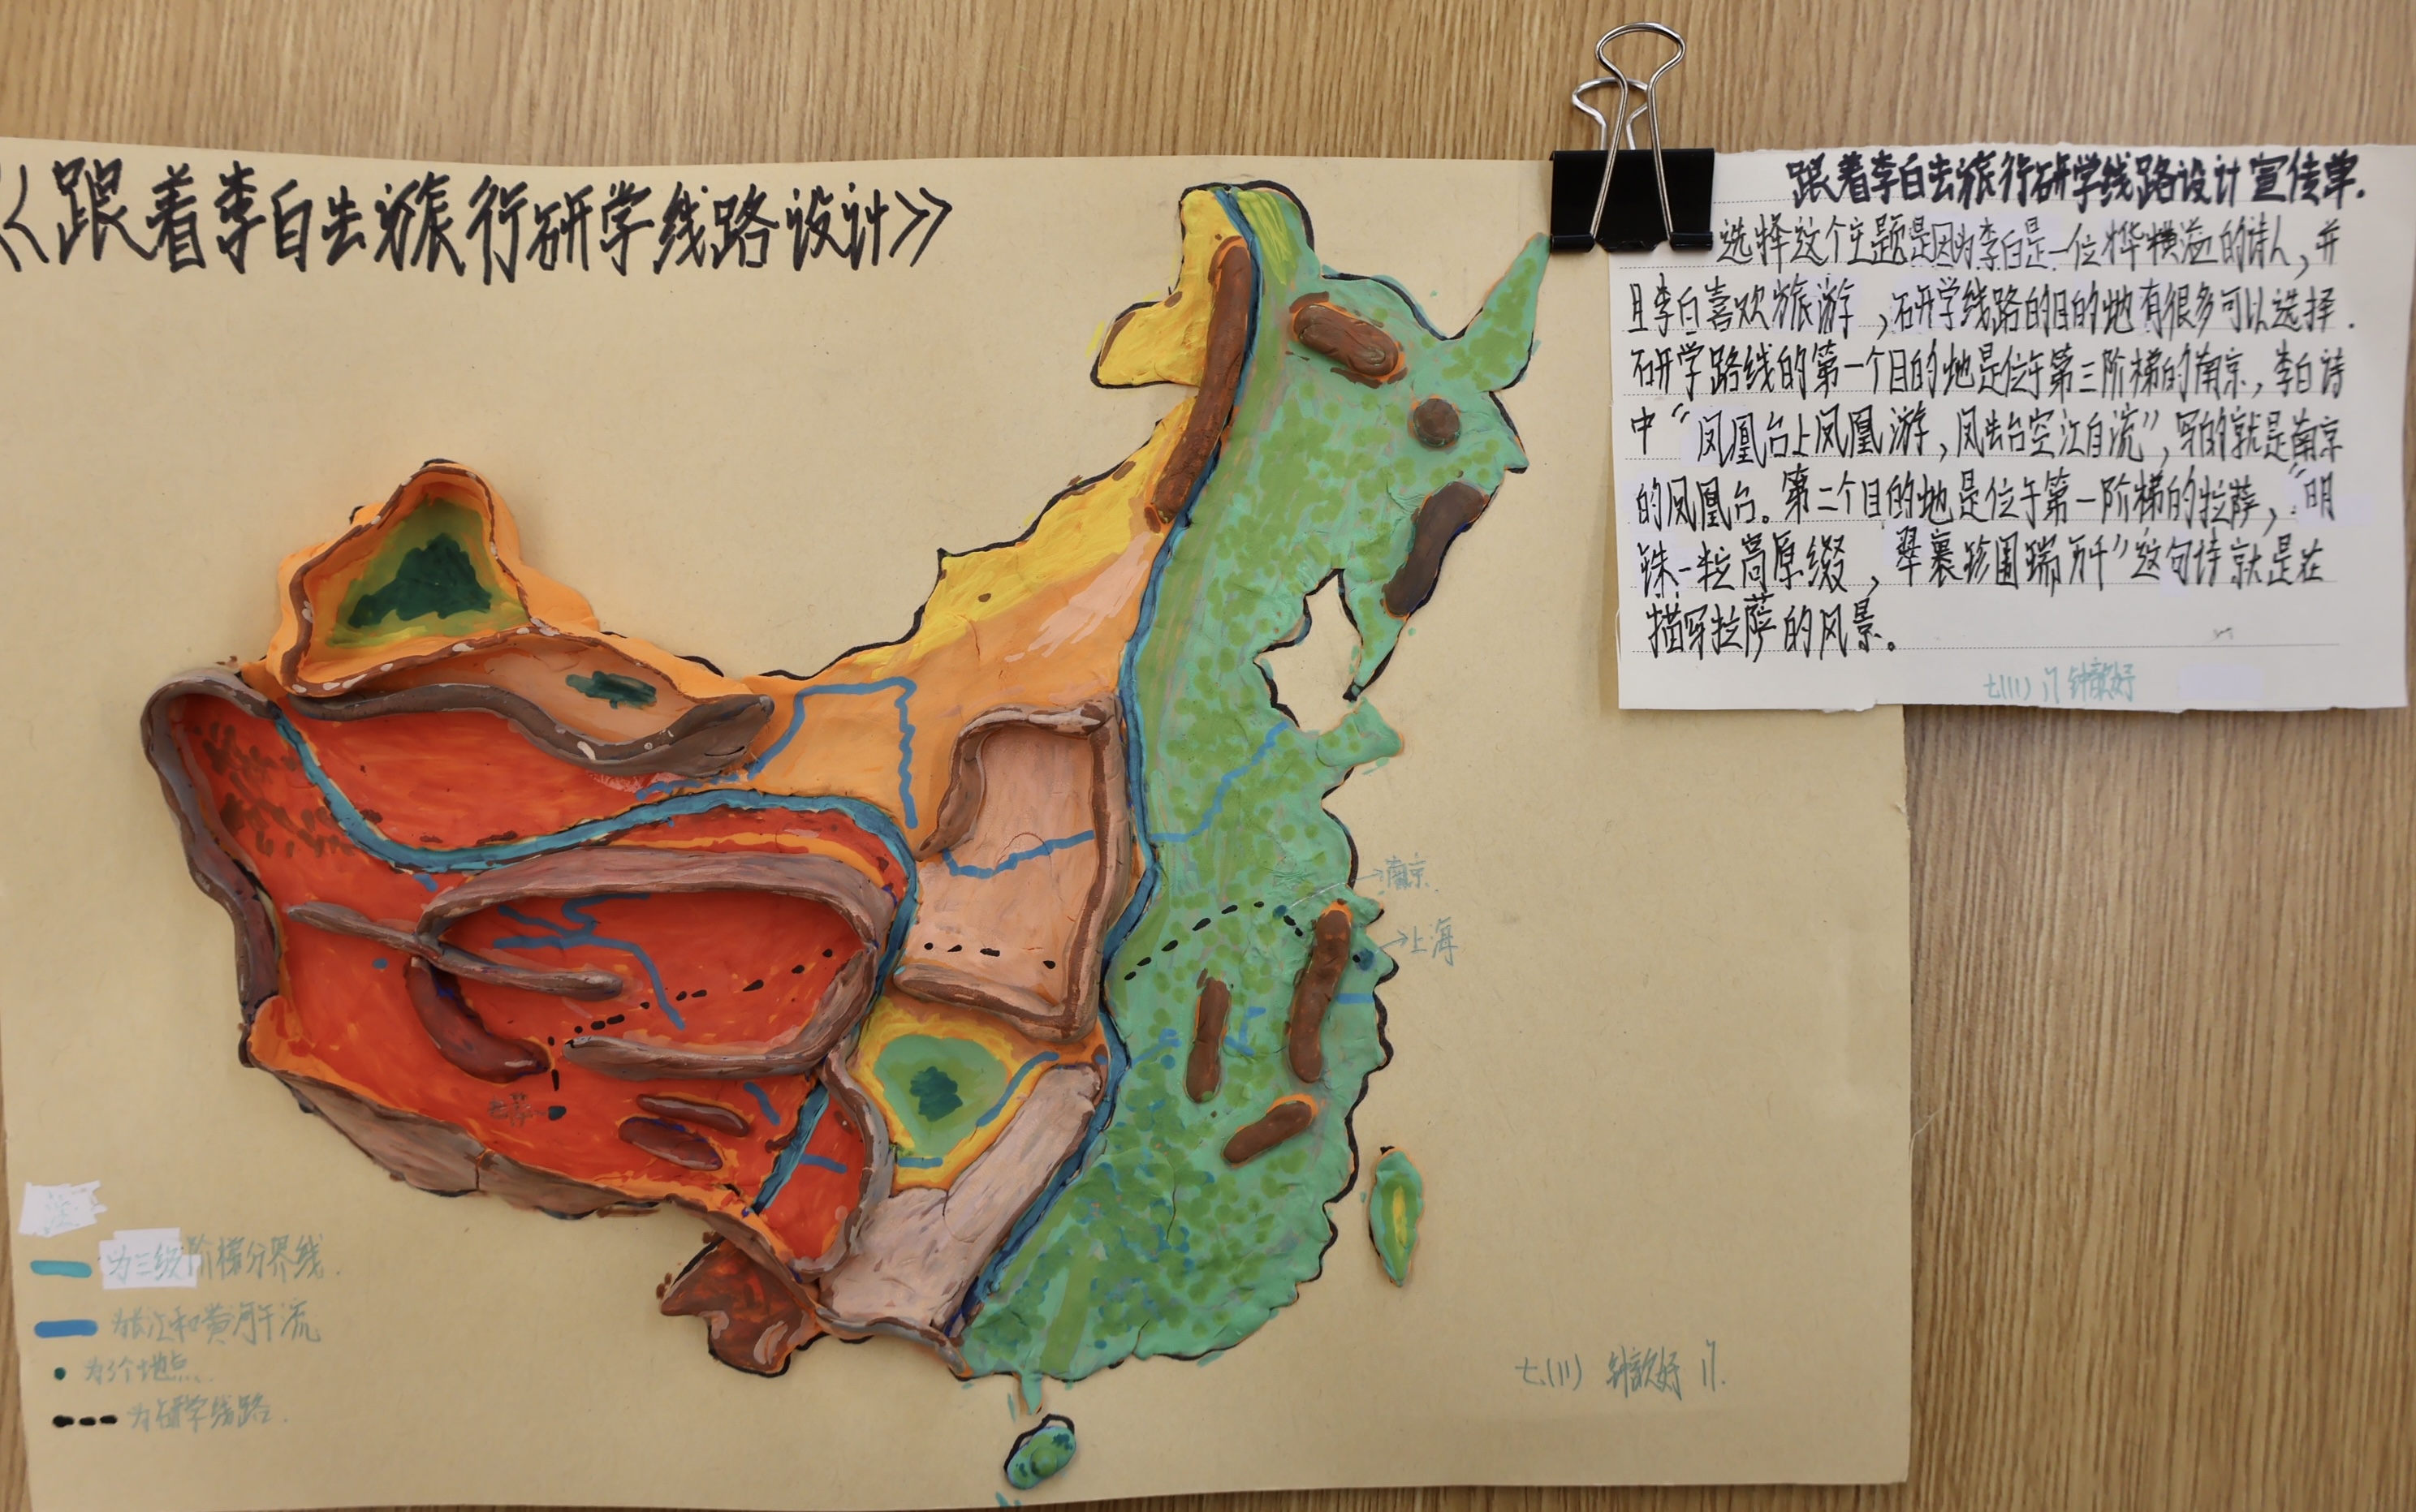 《跟着李白去旅行研学线路设计》
跟着李白去旅行研学线路设计宣传单.
选择这个主题是因为李白是一位才华横溢的诗人，并
且李白喜欢旅游，研学线路的目的地有很多可以选择.
研学路线的第一个目的地是位于第三阶梯的南京，李白诗
中“凤凰台上凤凰游，凤去台空江自流”，写的就是南京
的凤凰台。第二个目的地是位于第一阶梯的拉萨，“明
珠一粒高原缀，翠裹珍围瑞万千”这句诗就是在
描写拉萨的风景。
七(11) 11 钟歆妤
南京
上海
拉萨
注
为三级阶梯分界线.
为长江和黄河干流
为3个地点.
为研学线路.
七(11) 钟歆妤 11.